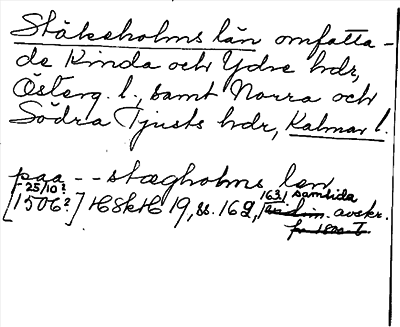 Stäkeholms län omfatta-
de Kinda och Ydre hdr,
Österg. l., samt Norra och
Södra Tjusts hdr, Kalmar l.
paa -- stægholms len
[25/10? 1506?] HSkH 19, s. 162, 1631 samtida vidim. avskr.
fr 1500-t